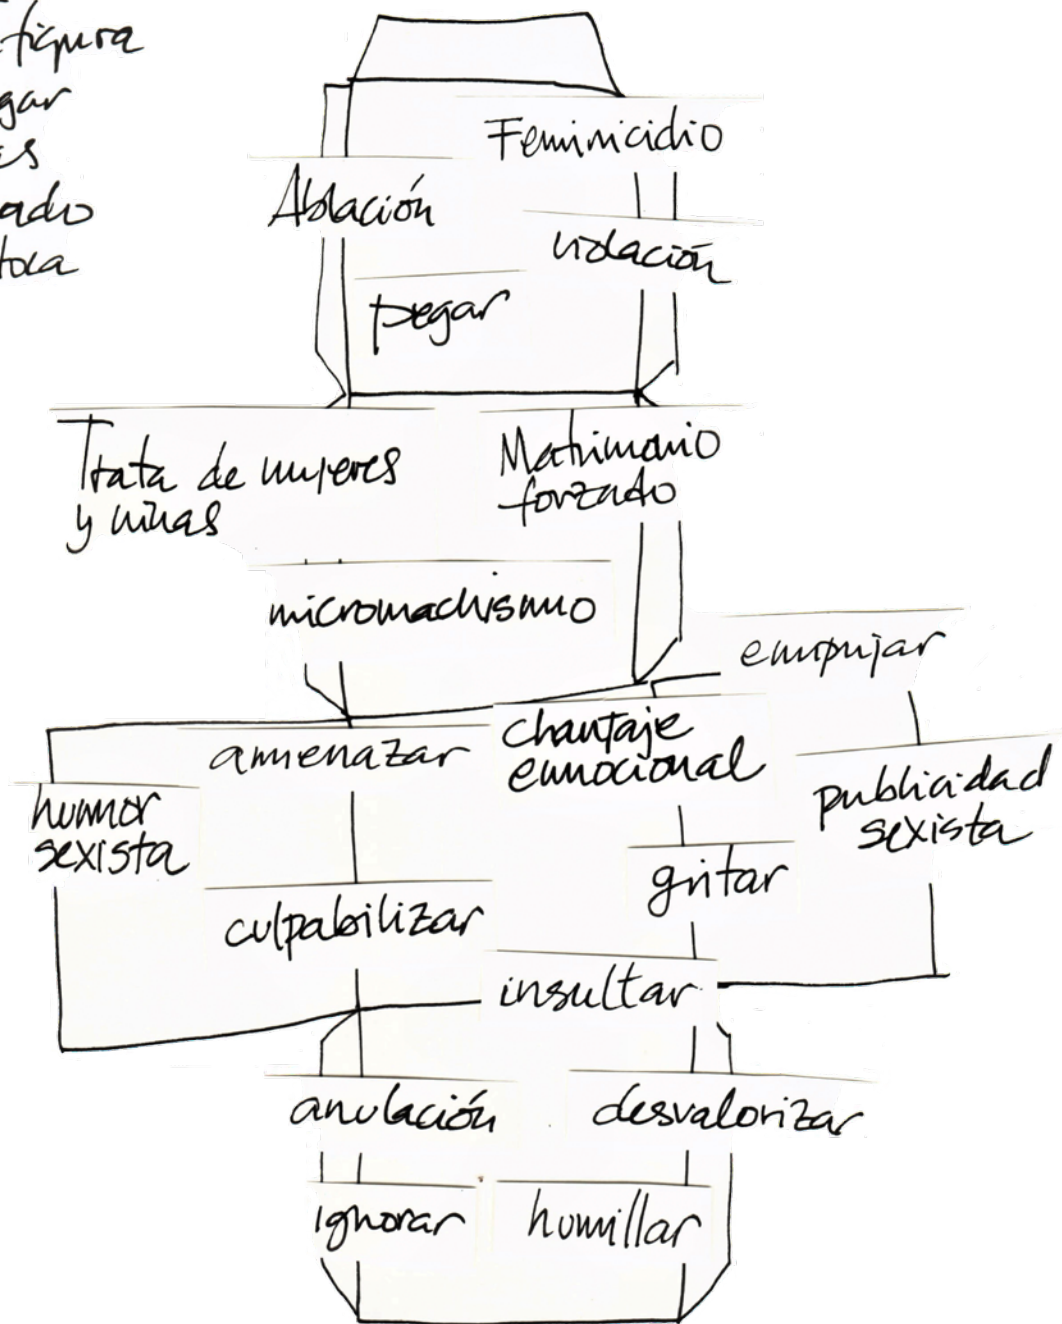 figura
gar
es
ado
toca
Feminicidio
Ablación
violación
pegar
Trata de mujeres
y niñas
Matrimonio
forzado
micromachismo
empujar
amenazar
chantaje
emocional
humor
sexista
publicidad
sexista
gritar
culpabilizar
insultar
anulación
desvalorizar
ignorar
humillar